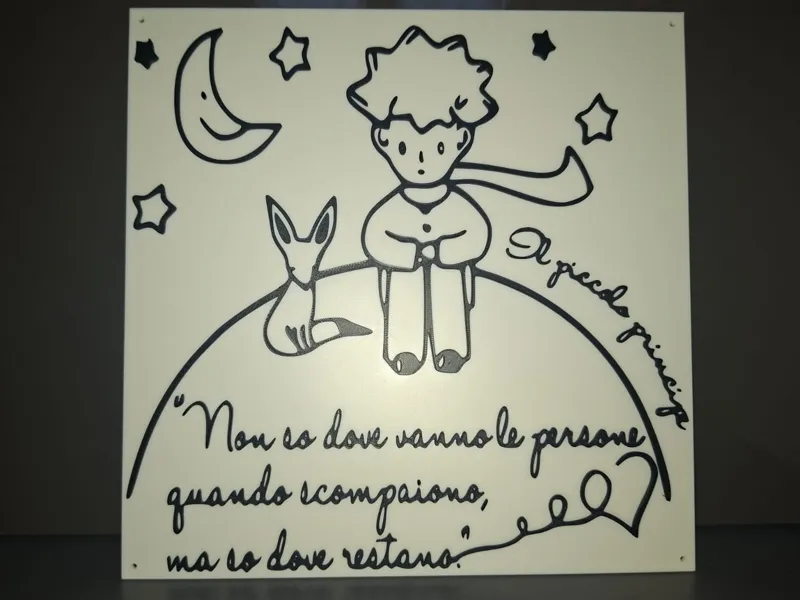 Il piccolo principe
"Non so dove vanno le persone
quando scompaiono,
ma so dove restano."